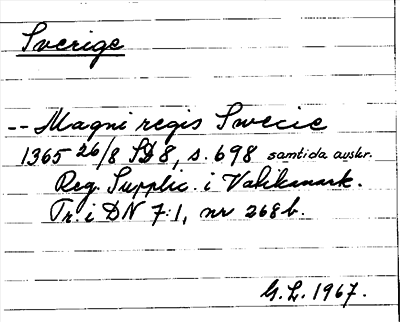 Sverige
-- Magni regis Swecie
1365 26/8 SD 8, s. 698 samtida avskr.
Reg. Supplic. i Vatikanark.
Tr. i DN 7:1, nr 268b.
G.L. 1967.